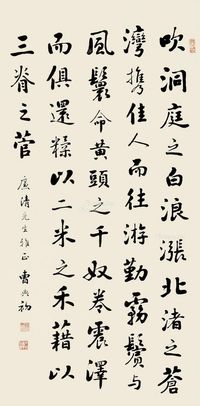 吹洞庭之白浪漲北渚之蒼
灣攜佳人而往游勤霧鬢与
風鬟命黃頭之千奴卷震澤
而俱還糅以二米之禾藉以
三脊之菅
廣清先生雅正 曹典初